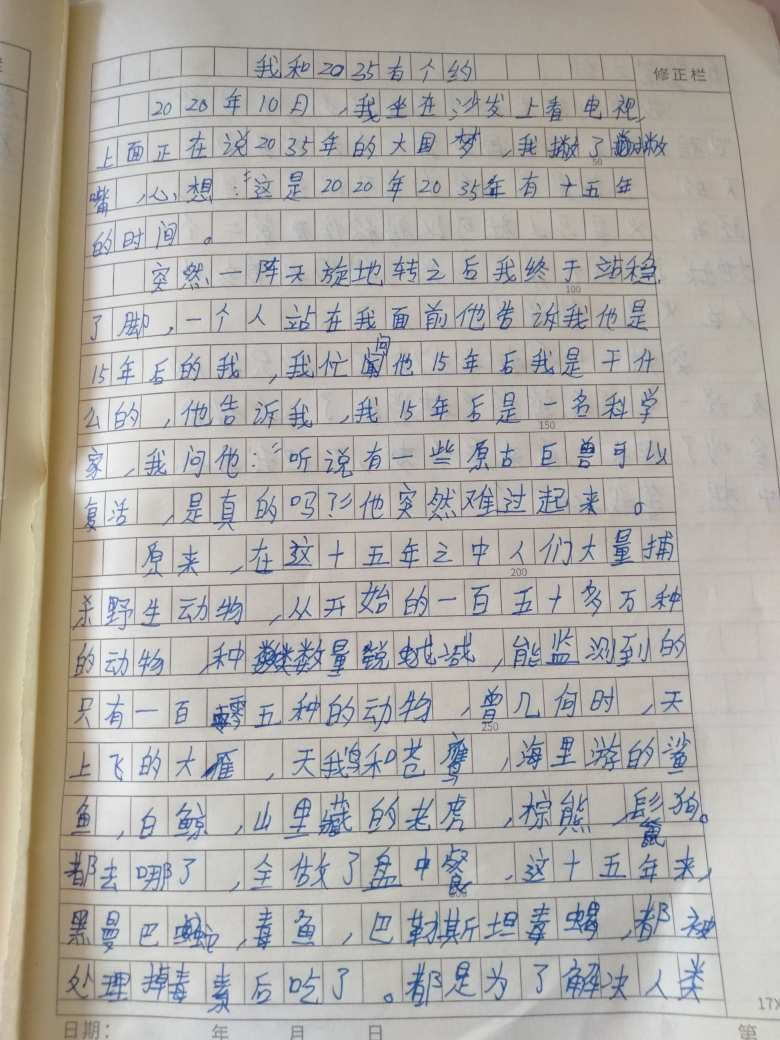 我和2035有个约
修正栏
2020年10月,我坐在沙发上看电视,
上面正在说2035年的大国梦,我撇了撇
50
嘴,心想:"这是2020年2035年有十五年
的时间。
突然一阵天旋地转之后我终于站稳
100
了脚,一个人站在我面前他告诉我他是
15年后的我,我忙问他15年后我是干什
么的,他告诉我,我15年后是一名科学
150
家,我问他:"听说有一些原古巨兽可以
复活,是真的吗?"他突然难过起来。
原来,在这十五年之中人们大量捕
200
杀野生动物,从开始的一百五十多万种
的动物,种类数量锐减,能监测到的
只有一百零五种的动物,曾几何时,天
250
上飞的大雁,天鹅和苍鹰,海里游的鲨
鱼,白鲸,山里藏的老虎,棕熊,鬣狗。
都去哪了,全做了盘中餐,这十五年来,
黑曼巴蛇,毒鱼,巴勒斯坦毒蝎,都被
处理掉毒素后吃了。都是为了解决人类
17X
日期: 年 月 日 第